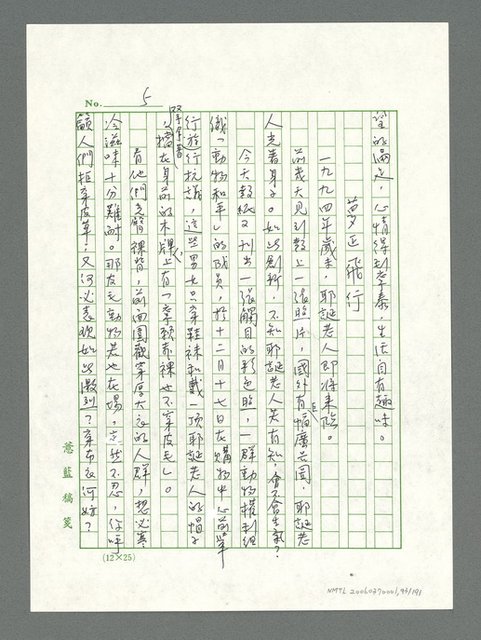 No. 5
望的滿足，心情得到舒泰，生活自有趣味。
夢正飛行
一九九四年歲末，耶誕老人即將來臨。
前幾天見到報上一張照片，國外有幅廣告圖，耶誕老
人光著身子。如此創新，不知耶誕老人若有知，會不會生氣？
今天報紙又刊出一張觸目的彩色照，一群動物權利組
織「動物和平」的成員，於十二月十七日在購物中心前舉
行遊行抗議，這些男女只穿鞋襪和戴一頂耶誕老人的帽子
，擋在身前的木牌上有「寧願赤裸也不穿皮毛」。
看他們光臂裸背，前面圍觀穿厚大衣的人群，想必寒
冷滋味十分難耐。那友毛動物若也在場，定然不忍，你呼
籲人們拒穿皮草，又何必表現如此激烈？穿布衣何妨？
慈藍稿箋
(12×25)
NMTL 20060370001,95/191